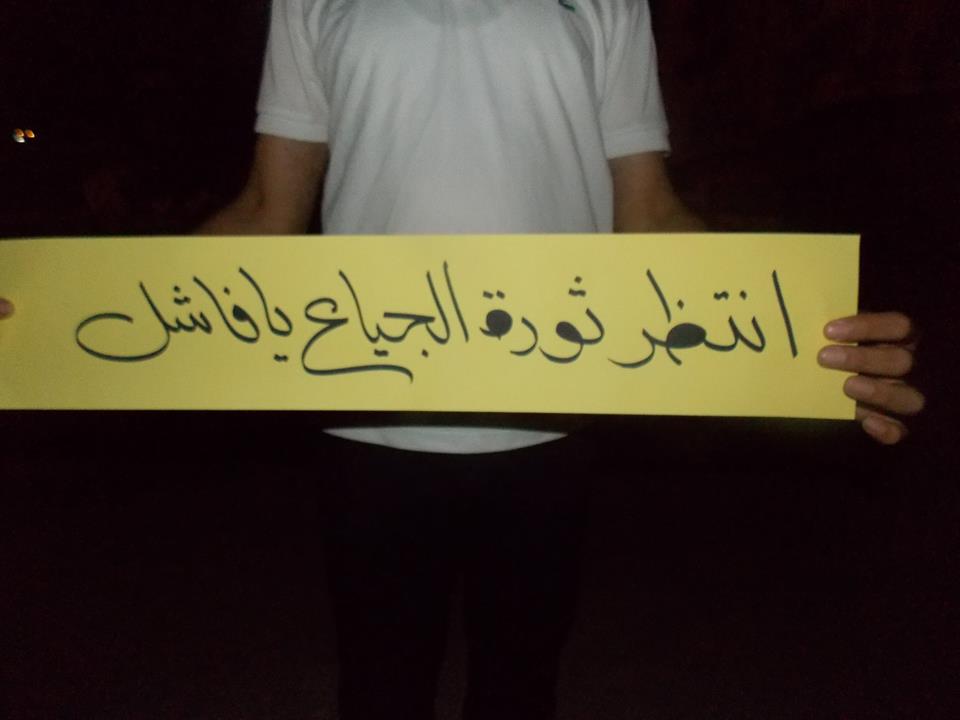 انتظر ثورة الجياع يا فاشل